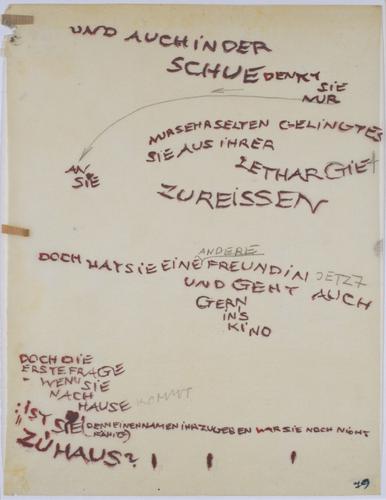 UND AUCH IN DER
SCHUE DENKT SIE
NUR
AN
SIE
NUR SEHR SELTEN GELINGT ES
SIE AUS IHRER
LETHARGIE
ZU REISSEN
ANDERE
DOCH HAT SIE EINE FREUNDIN JETZT
UND GEHT AUCH
GERN
INS
KINO
DOCH DIE
ERSTE FRAGE
- WENN SIE
NACH
HAUSE KOMMT
: IST SIE (DEM EINEN NAMEN IHR ZU GEBEN WAR SIE NOCH NICHT
FÄHIG)
ZUHAUS?
79